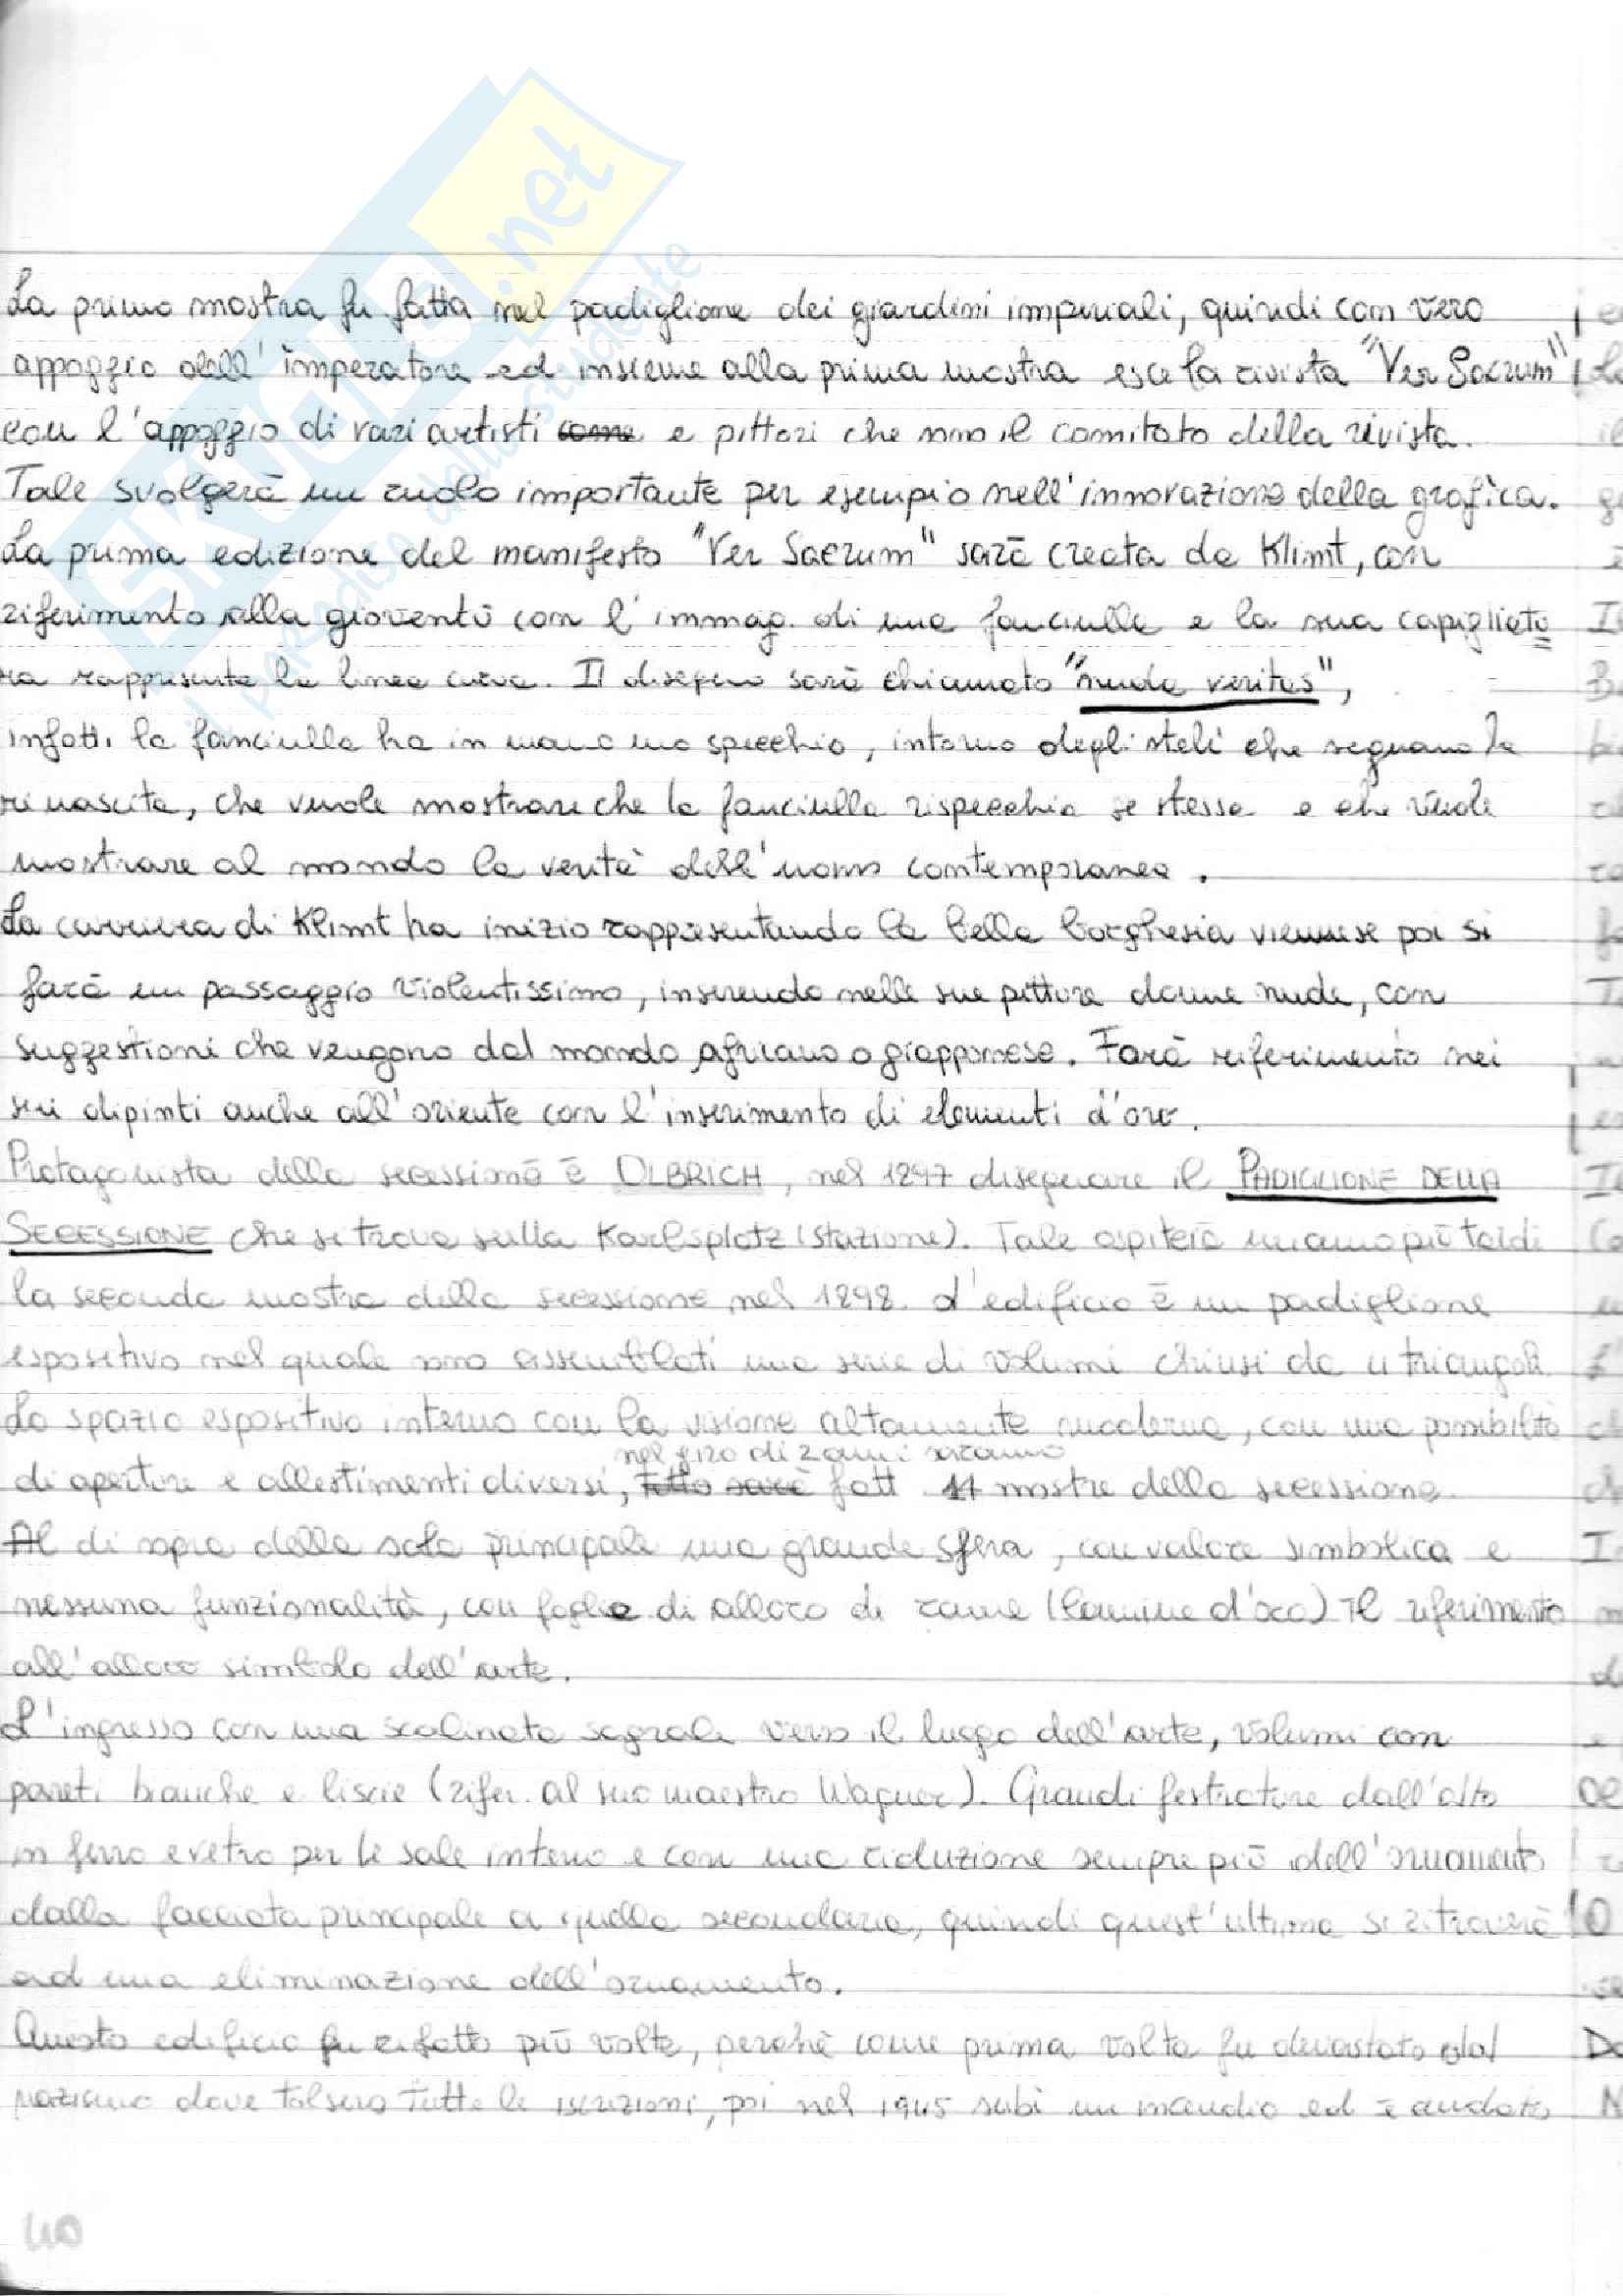 SKUOLA.net
il paradiso dello studente
La primo mostra fu fatta nel padiglione dei giardini imperiali, quindi con vero
appoggio dell'imperatore ed insieme alla prima mostra esce la rivista "Ver Sacrum"
con l'appoggio di vari artisti come e pittori che sono il comitato della rivista.
Tale svolgerà un ruolo importante per esempio nell'innovazione della grafica.
La prima edizione del manifesto "Ver Sacrum" sarà creata da Klimt, con
riferimento alla gioventù con l'immag. di una fanciulla e la sua capigliatu
ra rappresenta la linea curva. Il disegno sarà chiamato "nuda veritas",
infatti la fanciulla ha in mano uno specchio, intorno degli steli che segnano la
rinascita, che vuole mostrare che la fanciulla rispecchia se stessa e che vuole
mostrare al mondo la verità dell'uomo contemporaneo.
La carriera di Klimt ha inizio rappresentando la bella borghesia viennese poi si
farà un passaggio violentissimo, inserendo nelle sue pitture donne nude, con
suggestioni che vengono dal mondo africano o giapponese. Farà riferimento nei
suoi dipinti anche all'oriente con l'inserimento di elementi d'oro.
Protagonista della secessione è OLBRICH, nel 1897 disegnare il PADIGLIONE DELLA
SECESSIONE che si trova sulla Karlsplatz (stazione). Tale ospiterà un anno più tardi
la seconda mostra della secessione nel 1898. L'edificio è un padiglione
espositivo nel quale sono assemblati una serie di volumi chiusi da 4 triangoli.
Lo spazio espositivo interno con la visione altamente moderna, con una possibilità
nel giro di 7 anni saranno
di aperture e allestimenti diversi, tutto sarà fatt 11 mostre della secessione.
Al di sopra della sala principale una grande sfera, con valore simbolica e
nessuna funzionalità, con foglie di alloro di rame (lamine d'oro) Il riferimento
all'alloro simbolo dell'arte.
L'ingresso con una scalinata sagrale verso il luogo dell'arte, volumi con
pareti bianche e liscie (rifer. al suo maestro Wagner). Grandi festrature dall'alto
in ferro e vetro per le sale interno e con una riduzione sempre più dell'ornamento
dalla facciata principale a quella secondaria, quindi quest'ultima si ritroverà
ad una eliminazione dell'ornamento.
Questo edificio fu rifatto più volte, perchè come prima volta fu devastato dal
nazismo dove tolsero tutte le iscrizioni, poi nel 1945 subì un incendio ed è andato
40